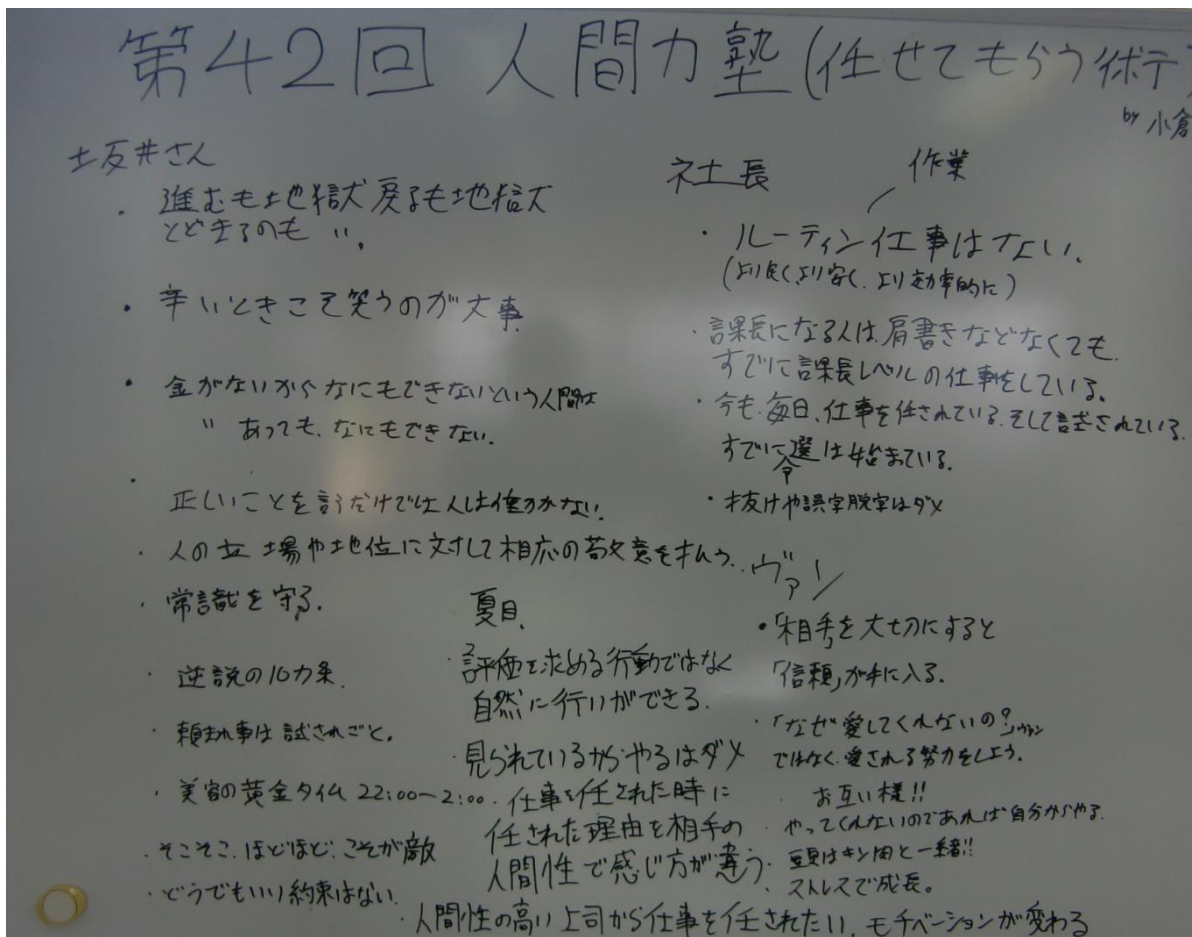 第42回 人間力塾(任せてもらう術〒)
by 小倉
土坂井さん
・進むも地獄 戻るも地獄
とどまるのも 〃。
・辛いときこそ笑うのが大事
・金がないからなにもできないという人間は
〃 あっても、なにもできない。
・正しいことを言うだけでは人は働かない。
・人の立場や地位に対して相応の敬意を払う。
・常識を守る。
・逆説の10カ条
・頼まれ事は試されごと。
・美容の黄金タイム 22:00〜2:00
・そこそこ、ほどほど、こそが敵
・どうでもいい約束はない。
夏目
・評価を求める行動ではなく
自然に行いができる。
・見られているからやるはダメ
・仕事を任された時に
任された理由を相手の
人間性で感じ方が違う
・人間性の高い上司から仕事を任されたい、モチベーションが変わる
社長
作業
・ルーティン仕事はない。
(より良く、より安く、より効率的に)
・課長になる人は、肩書きなどなくても、
すでに課長レベルの仕事をしている。
・今も、毎日、仕事を任されている。そして試されている。
すでに選は始まている。
・抜けや誤字脱字はダメ
ヴァン
・「相手」を大切にすると
「信頼」が手に入る。
・「なぜ愛してくれないの?」ヴァン
ではなく、愛される努力をしよう。
お互い様!!
・やってくれないのであれば自分からやる。
・豆頁はキン肉と一緒!!
ストレスで成長。